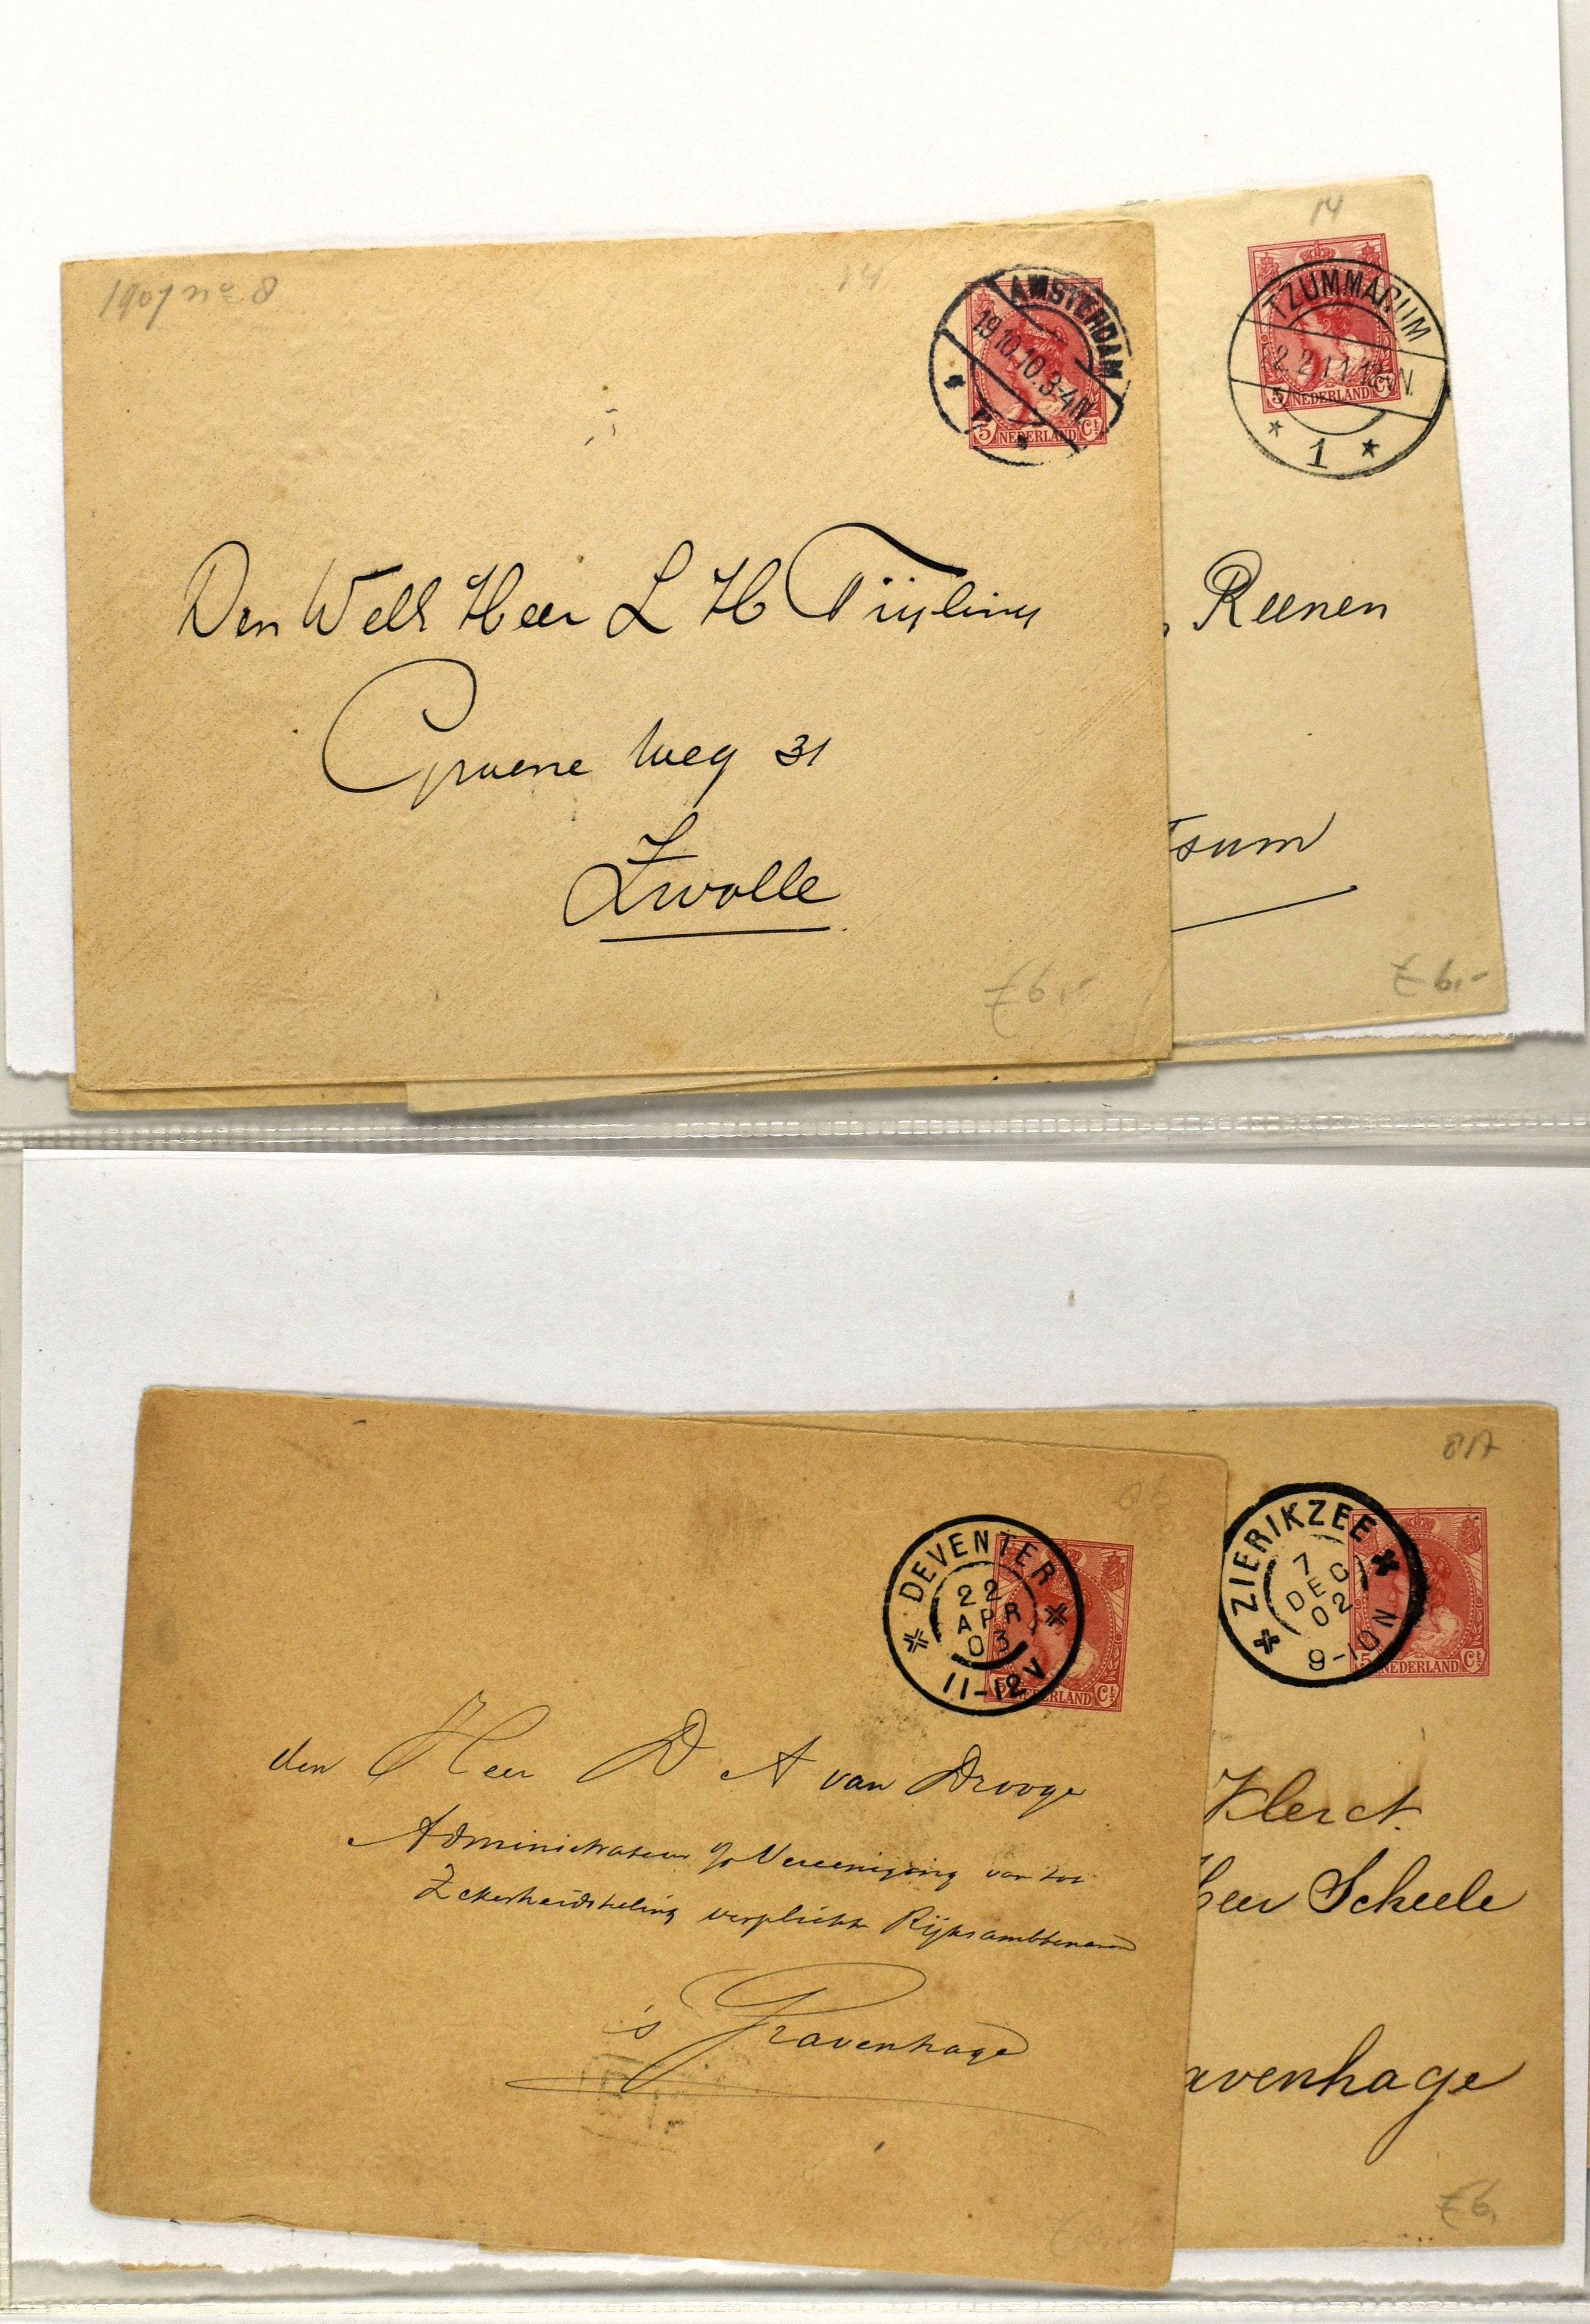 1907 no 8
14
AMSTERDAM
19.10.10.3-4N
5 NEDERLAND Ct
Den WelE Heer L H Tijsling
Groene Weg 31
Zwolle
ƒ 6,-
14
TZUMMARUM
2.2.11.12-1N
1
5 NEDERLAND Ct
Reenen
sum
ƒ 6,-
DEVENTER
22
APR
03
11-12V
NEDERLAND Ct
den Heer D A van Drooge
Administrateur Vereeniging van tot
Zekerheidstelling verplichte Rijksambtenaren
's Gravenhage
8A
ZIERIKZEE
7
DEC
02
9-10N
5 NEDERLAND Ct
Klerct.
Heer Scheele
avenhage
ƒ 6,